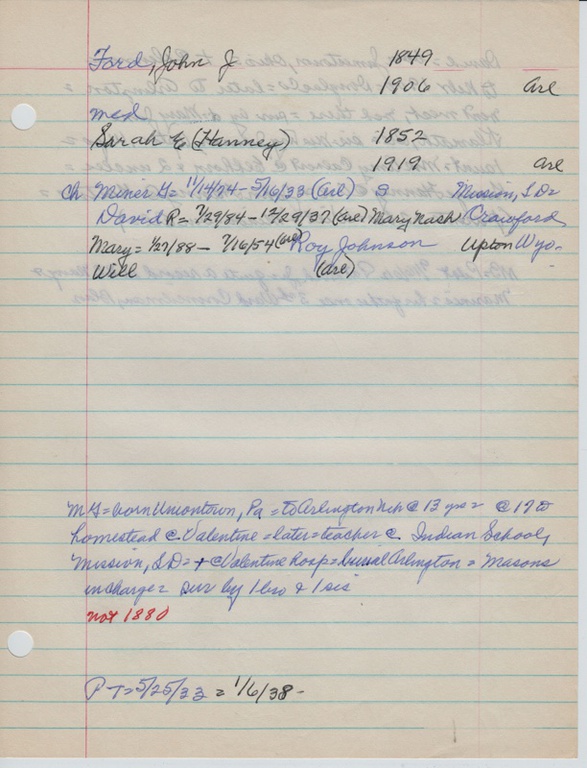 Ford, John J 1849
1906 Arl
med
Sarah E (Hanney) 1852
1919 Arl
Ch Miner G= 11/14/74 - 5/16/33 (Arl) S Mission, SD=
David R= 7/29/84 - 12/29/37 (Arl) Mary Nash Crawford
Mary= 1/27/88 - 7/16/54 (Arl) Roy Johnson Upton Wyo.
Will (Arl)
MG= born Uniontown, Pa = to Arlington Neb @ 13 yrs = @ 19 to
homestead @ Valentine = later = teacher @ Indian School,
Mission, SD= + @ Valentine Hosp = burial Arlington = Masons
in charge = sur by 1 bro & 1 sis
not 1880
P T= 5/25/33 = 1/6/38 -